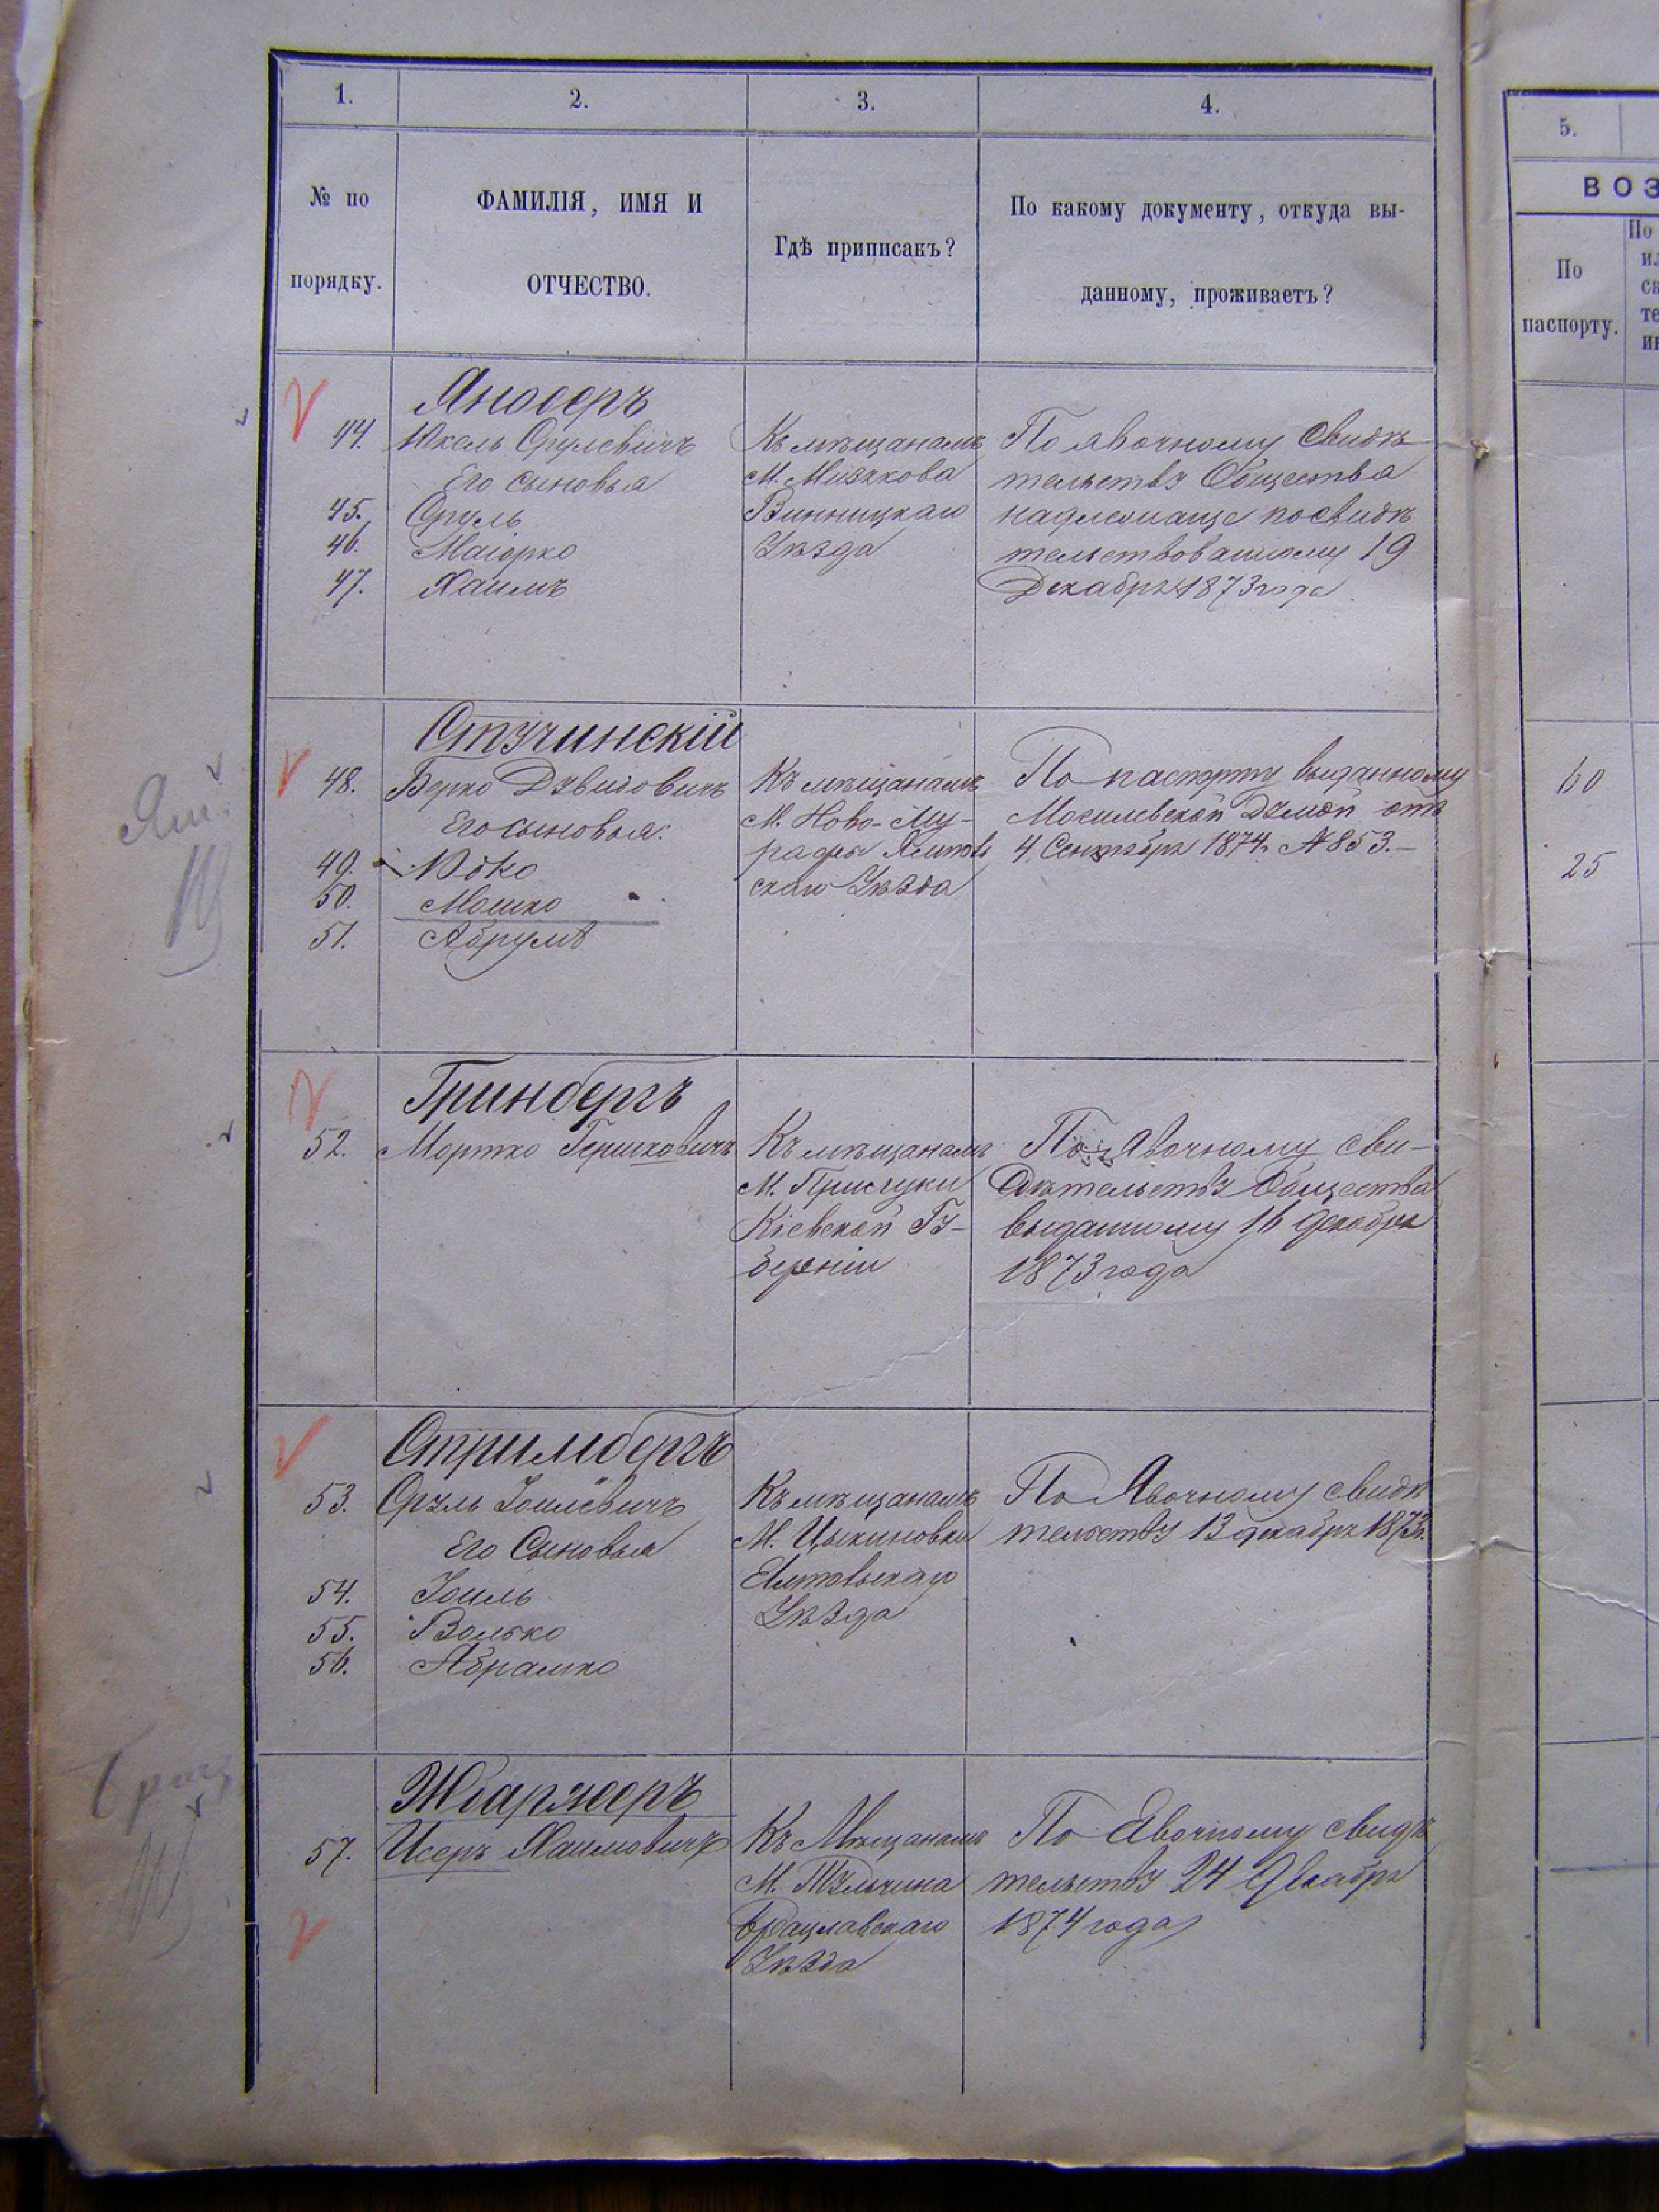 1.
2.
3.
4.
5.
№ по
порядку.
ФАМИЛІЯ, ИМЯ И
ОТЧЕСТВО.
Гдѣ приписакъ?
По какому документу, откуда вы-
данному, проживаетъ?
ВОЗ
По
паспорту.
По
Яносеръ
44. Юкель Срулевичъ
Его сыновья
45. Сруль
46. Маіорко
47. Хаимъ
Къ мѣщанамъ
М. Мизякова
Винницкаго
Уѣзда
По явочному свидѣ
тельству Общества
надлежаще посвидѣ
тельствованному 19
Декабря 1873 года
Ямп.
Стучинскій
48. Берко Дувидовичъ
Его сыновья:
49. Юдко
50. Мошко
51. Абрумъ
Къ мѣщанамъ
М. Ново-Му-
рафы Ямполь
скаго Уѣзда
По паспорту выданному
Могилевской Думой отъ
4 Сентября 1874 г. № 853.—
60
25
Гринбергъ
52. Мортко Гершковичъ
Къ мѣщанамъ
М. Прилуки
Кіевской Гу-
берніи
По явочному сви-
дѣтельству Общества
выданному 16 декабря
1873 года
Стримбергъ
53. Сруль Іоилевичъ
Его Сыновья
54. Іоиль
55. Волько
56. Абрамко
Къ мѣщанамъ
М. Цыкиновки
Ямпольскаго
Уѣзда
По Явочному свидѣ
тельству 13 декабря 1873 г.
Брац
Жбаржеръ
57. Исеръ Хаимовичъ
Къ Мѣщанамъ
М. Тульчина
Брацлавскаго
Уѣзда
По Явочному свидѣ
тельству 24 Декабря
1874 года